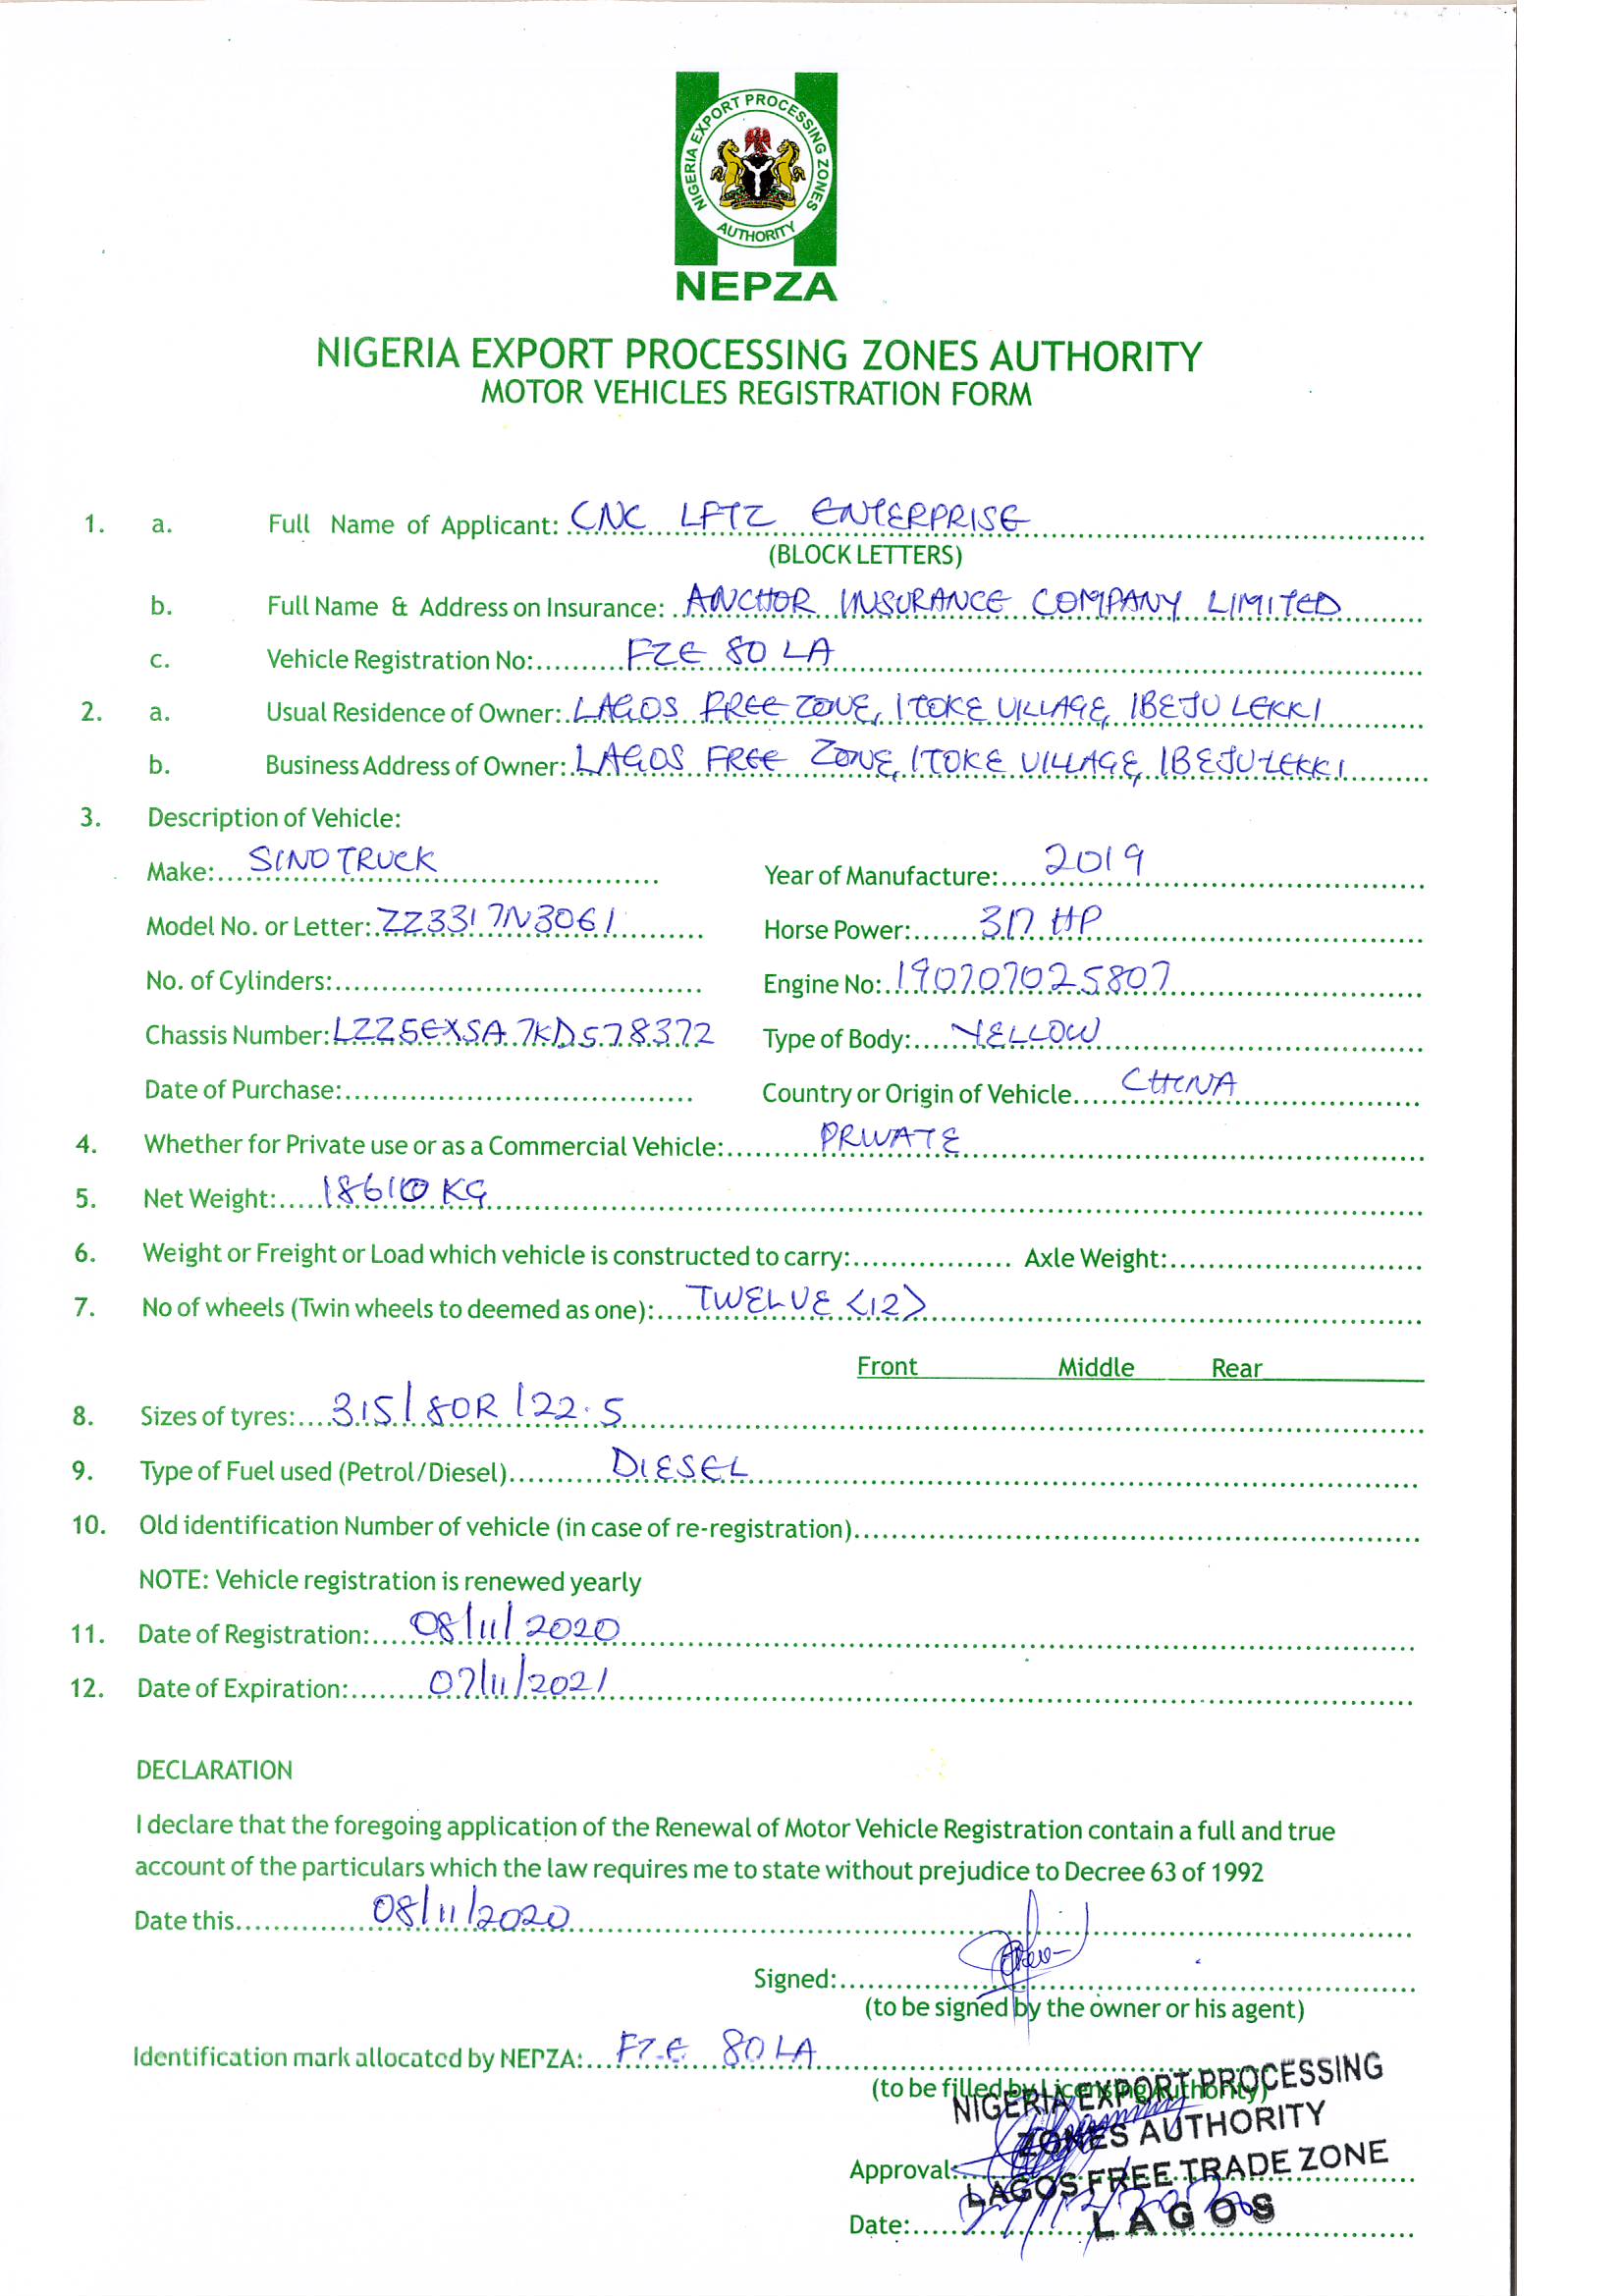 NIGERIA EXPORT PROCESSING ZONES
AUTHORITY
NEPZA
NIGERIA EXPORT PROCESSING ZONES AUTHORITY
MOTOR VEHICLES REGISTRATION FORM
1. a. Full Name of Applicant: CNC LFTZ ENTERPRISE
(BLOCK LETTERS)
b. Full Name & Address on Insurance: ANCHOR INSURANCE COMPANY LIMITED
c. Vehicle Registration No: FZE 80 LA
2. a. Usual Residence of Owner: LAGOS FREE ZONE, ITOKE VILLAGE, IBEJU LEKKI
b. Business Address of Owner: LAGOS FREE ZONE, ITOKE VILLAGE, IBEJU LEKKI
3. Description of Vehicle:
Make: SINO TRUCK Year of Manufacture: 2019
Model No. or Letter: ZZ3317N3061 Horse Power: 317 HP
No. of Cylinders: Engine No: 190707025807
Chassis Number: LZZ5EXSA7KD578372 Type of Body: YELLOW
Date of Purchase: Country or Origin of Vehicle CHINA
4. Whether for Private use or as a Commercial Vehicle: PRIVATE
5. Net Weight: 18610 KG
6. Weight or Freight or Load which vehicle is constructed to carry: Axle Weight:
7. No of wheels (Twin wheels to deemed as one): TWELVE <12>
Front Middle Rear
8. Sizes of tyres: 315/80R/22.5
9. Type of Fuel used (Petrol/Diesel) DIESEL
10. Old identification Number of vehicle (in case of re-registration)
NOTE: Vehicle registration is renewed yearly
11. Date of Registration: 08/11/2020
12. Date of Expiration: 07/11/2021
DECLARATION
I declare that the foregoing application of the Renewal of Motor Vehicle Registration contain a full and true
account of the particulars which the law requires me to state without prejudice to Decree 63 of 1992
Date this 08/11/2020
Signed:
(to be signed by the owner or his agent)
Identification mark allocated by NEPZA: FZE 80 LA
(to be filled by Licensing Authority)
NIGERIA EXPORT PROCESSING
ZONES AUTHORITY
Approval:
LAGOS FREE TRADE ZONE
Date:
LAGOS